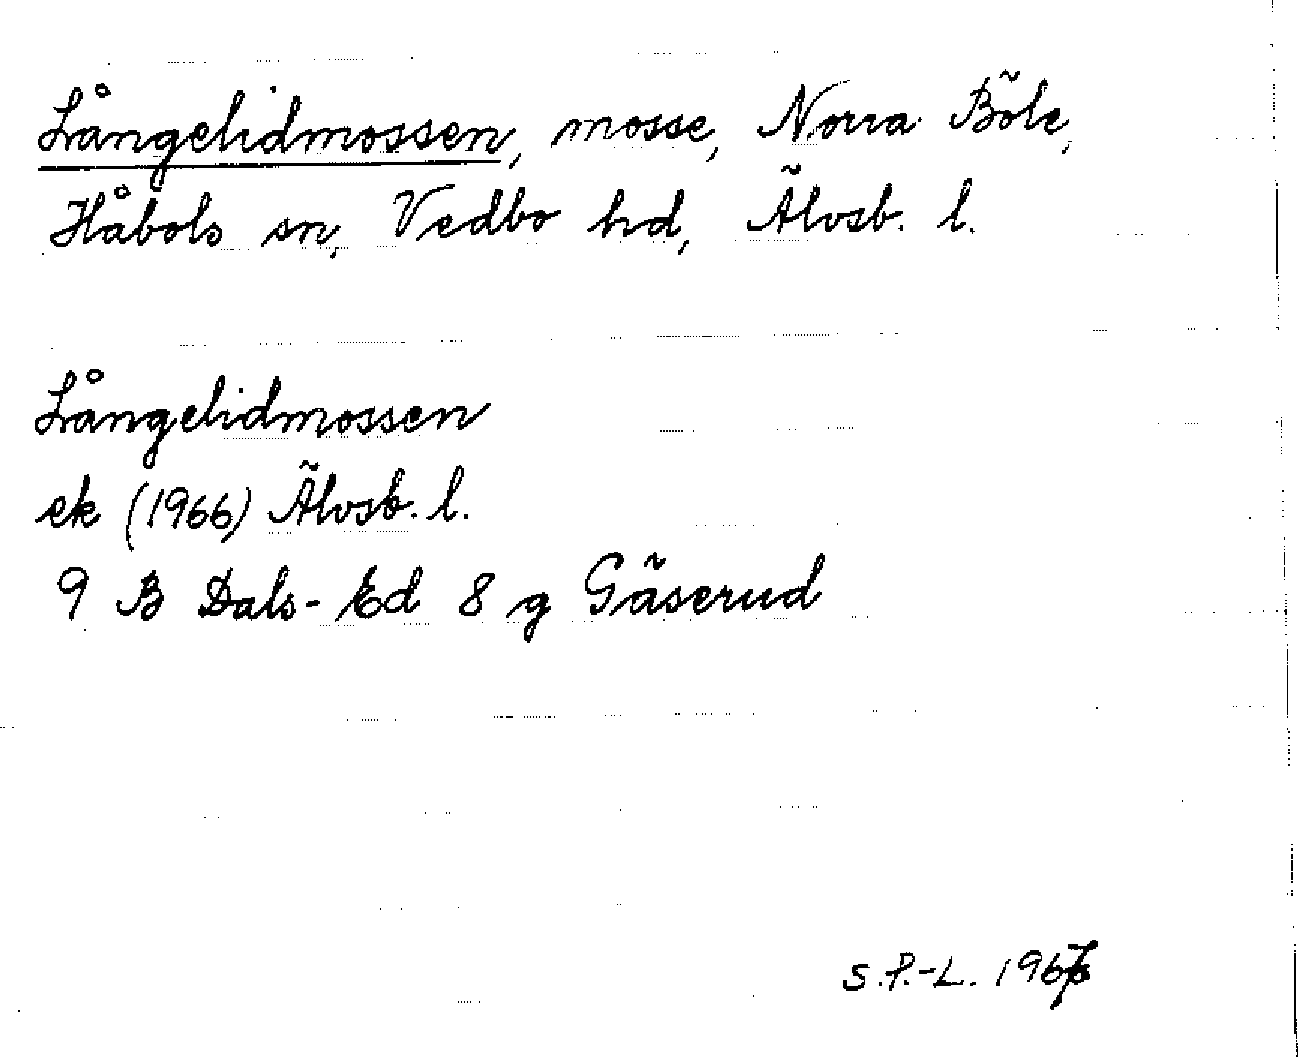 Långelidmossen, mosse, Norra Böle,
Håbols sn, Vedbo hd, Älvsb. l.
Långelidmossen
ek (1966) Älvsb. l.
9 B Dals-Ed 8 g Gäserud
S.P.-L. 1967